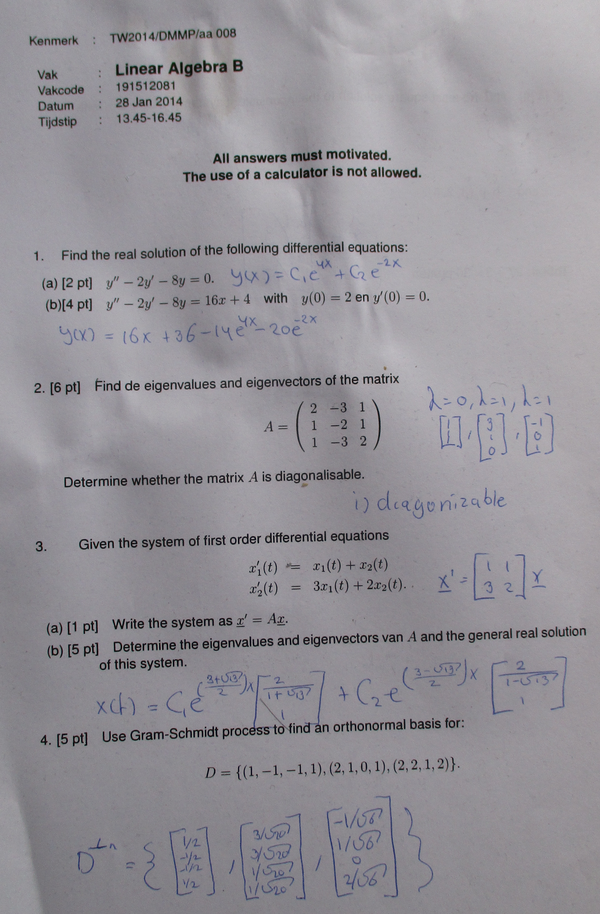 Kenmerk : TW2014/DMMP/aa 008
Vak : Linear Algebra B
Vakcode : 191512081
Datum : 28 Jan 2014
Tijdstip : 13.45-16.45
All answers must motivated.
The use of a calculator is not allowed.
1. Find the real solution of the following differential equations:
(a) [2 pt] y'' − 2y' − 8y = 0. y(x) = C₁e^{4x} + C₂e^{-2x}
(b)[4 pt] y'' − 2y' − 8y = 16x + 4 with y(0) = 2 en y'(0) = 0.
y(x) = 16x + 36 - 14e^{4x} - 20e^{-2x}
2. [6 pt] Find de eigenvalues and eigenvectors of the matrix
λ=0, λ=1, λ=1
A = ( 2 −3 1
1 −2 1
1 −3 2 )
[1 1 1], [3 1 0], [-1 0 1]
Determine whether the matrix A is diagonalisable.
i) diagonizable
3. Given the system of first order differential equations
x₁'(t) = x₁(t) + x₂(t)
x₂'(t) = 3x₁(t) + 2x₂(t).
x' = [1 1
3 2] x
(a) [1 pt] Write the system as x' = Ax.
(b) [5 pt] Determine the eigenvalues and eigenvectors van A and the general real solution
of this system.
x(t) = C₁e^{(3+√13/2)x} [2/(1+√13) 1] + C₂e^{(3-√13/2)x} [2/(1-√13) 1]
4. [5 pt] Use Gram-Schmidt process to find an orthonormal basis for:
D = {(1, −1, −1, 1), (2, 1, 0, 1), (2, 2, 1, 2)}.
D^{⊥n} = { [1/2 -1/2 -1/2 1/2], [3/√20 3/√20 1/√20 1/√20], [-1/√6 1/√6 0 2/√6] }